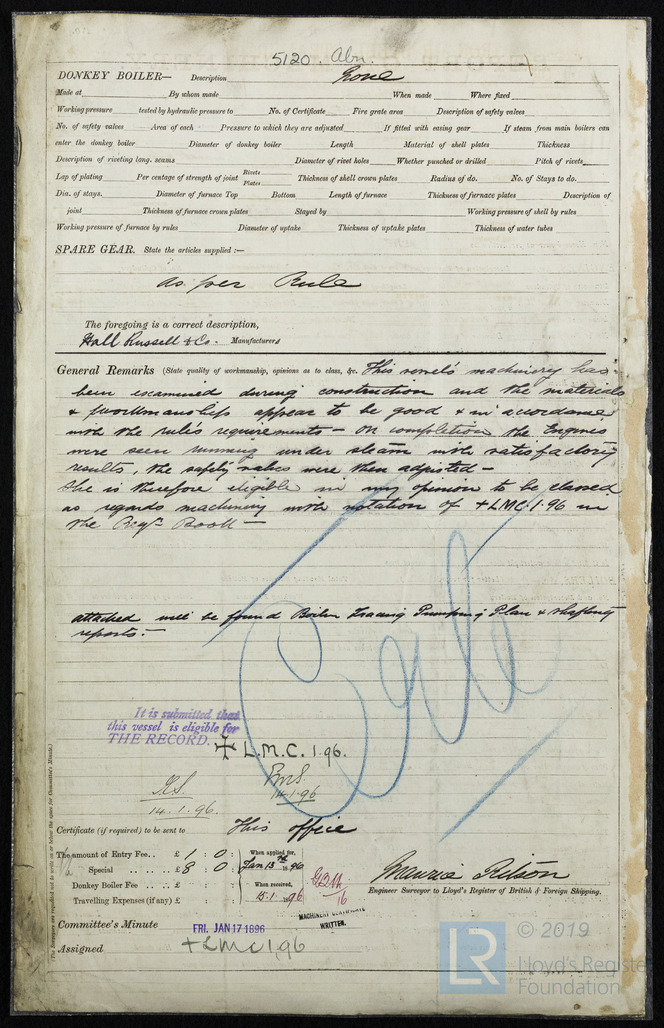 5120. Abn.
DONKEY BOILER— Description None
Made at By whom made When made Where fixed
Working pressure tested by hydraulic pressure to No. of Certificate Fire grate area Description of safety valves
No. of safety valves Area of each Pressure to which they are adjusted If fitted with easing gear If steam from main boilers can
enter the donkey boiler Diameter of donkey boiler Length Material of shell plates Thickness
Description of riveting long. seams Diameter of rivet holes Whether punched or drilled Pitch of rivets
Lap of plating Per centage of strength of joint Rivets Plates Thickness of shell crown plates Radius of do. No. of Stays to do.
Dia. of stays. Diameter of furnace Top Bottom Length of furnace Thickness of furnace plates Description of
joint Thickness of furnace crown plates Stayed by Working pressure of shell by rules
Working pressure of furnace by rules Diameter of uptake Thickness of uptake plates Thickness of water tubes
SPARE GEAR. State the articles supplied :—
as per Rule
The foregoing is a correct description,
Hall Russell & Co. Manufacturers
General Remarks (State quality of workmanship, opinions as to class, &c. This vessel's machinery has
been examined during construction and the materials
& workmanship appear to be good & in accordance
with the rule's requirements – On completion the Engines
were seen running under steam with satisfactory
results, the safety valves were then adjusted –
She is therefore eligible in my opinion to be classed
as regards machinery with notation of +LMC.1.96 in
the Regr. Book —
attached will be found Boiler Tracing Pumping Plan & shafting
reports:-
Cert
It is submitted that
this vessel is eligible for
THE RECORD. + L.M.C. 1.96.
14.1.96
14.1.96.
Certificate (if required) to be sent to This office
The amount of Entry Fee.. £ 1 : 0 : When applied for,
Special .. .. £ 8 : 0 : Jan 13th 1896
Donkey Boiler Fee .. .. £ : : When received,
Travelling Expenses (if any) £ : : 15.1.1896
Maurice Ritson
Engineer Surveyor to Lloyd's Register of British & Foreign Shipping.
MACHINERY CERTIFICATE
WRITTEN.
Committee's Minute FRI. JAN 17 1896
Assigned + LMC 1,96
(The Surveyors are requested not to write on or below the space for Committee's Minute.)
LR
© 2019
Lloyd's Register
Foundation